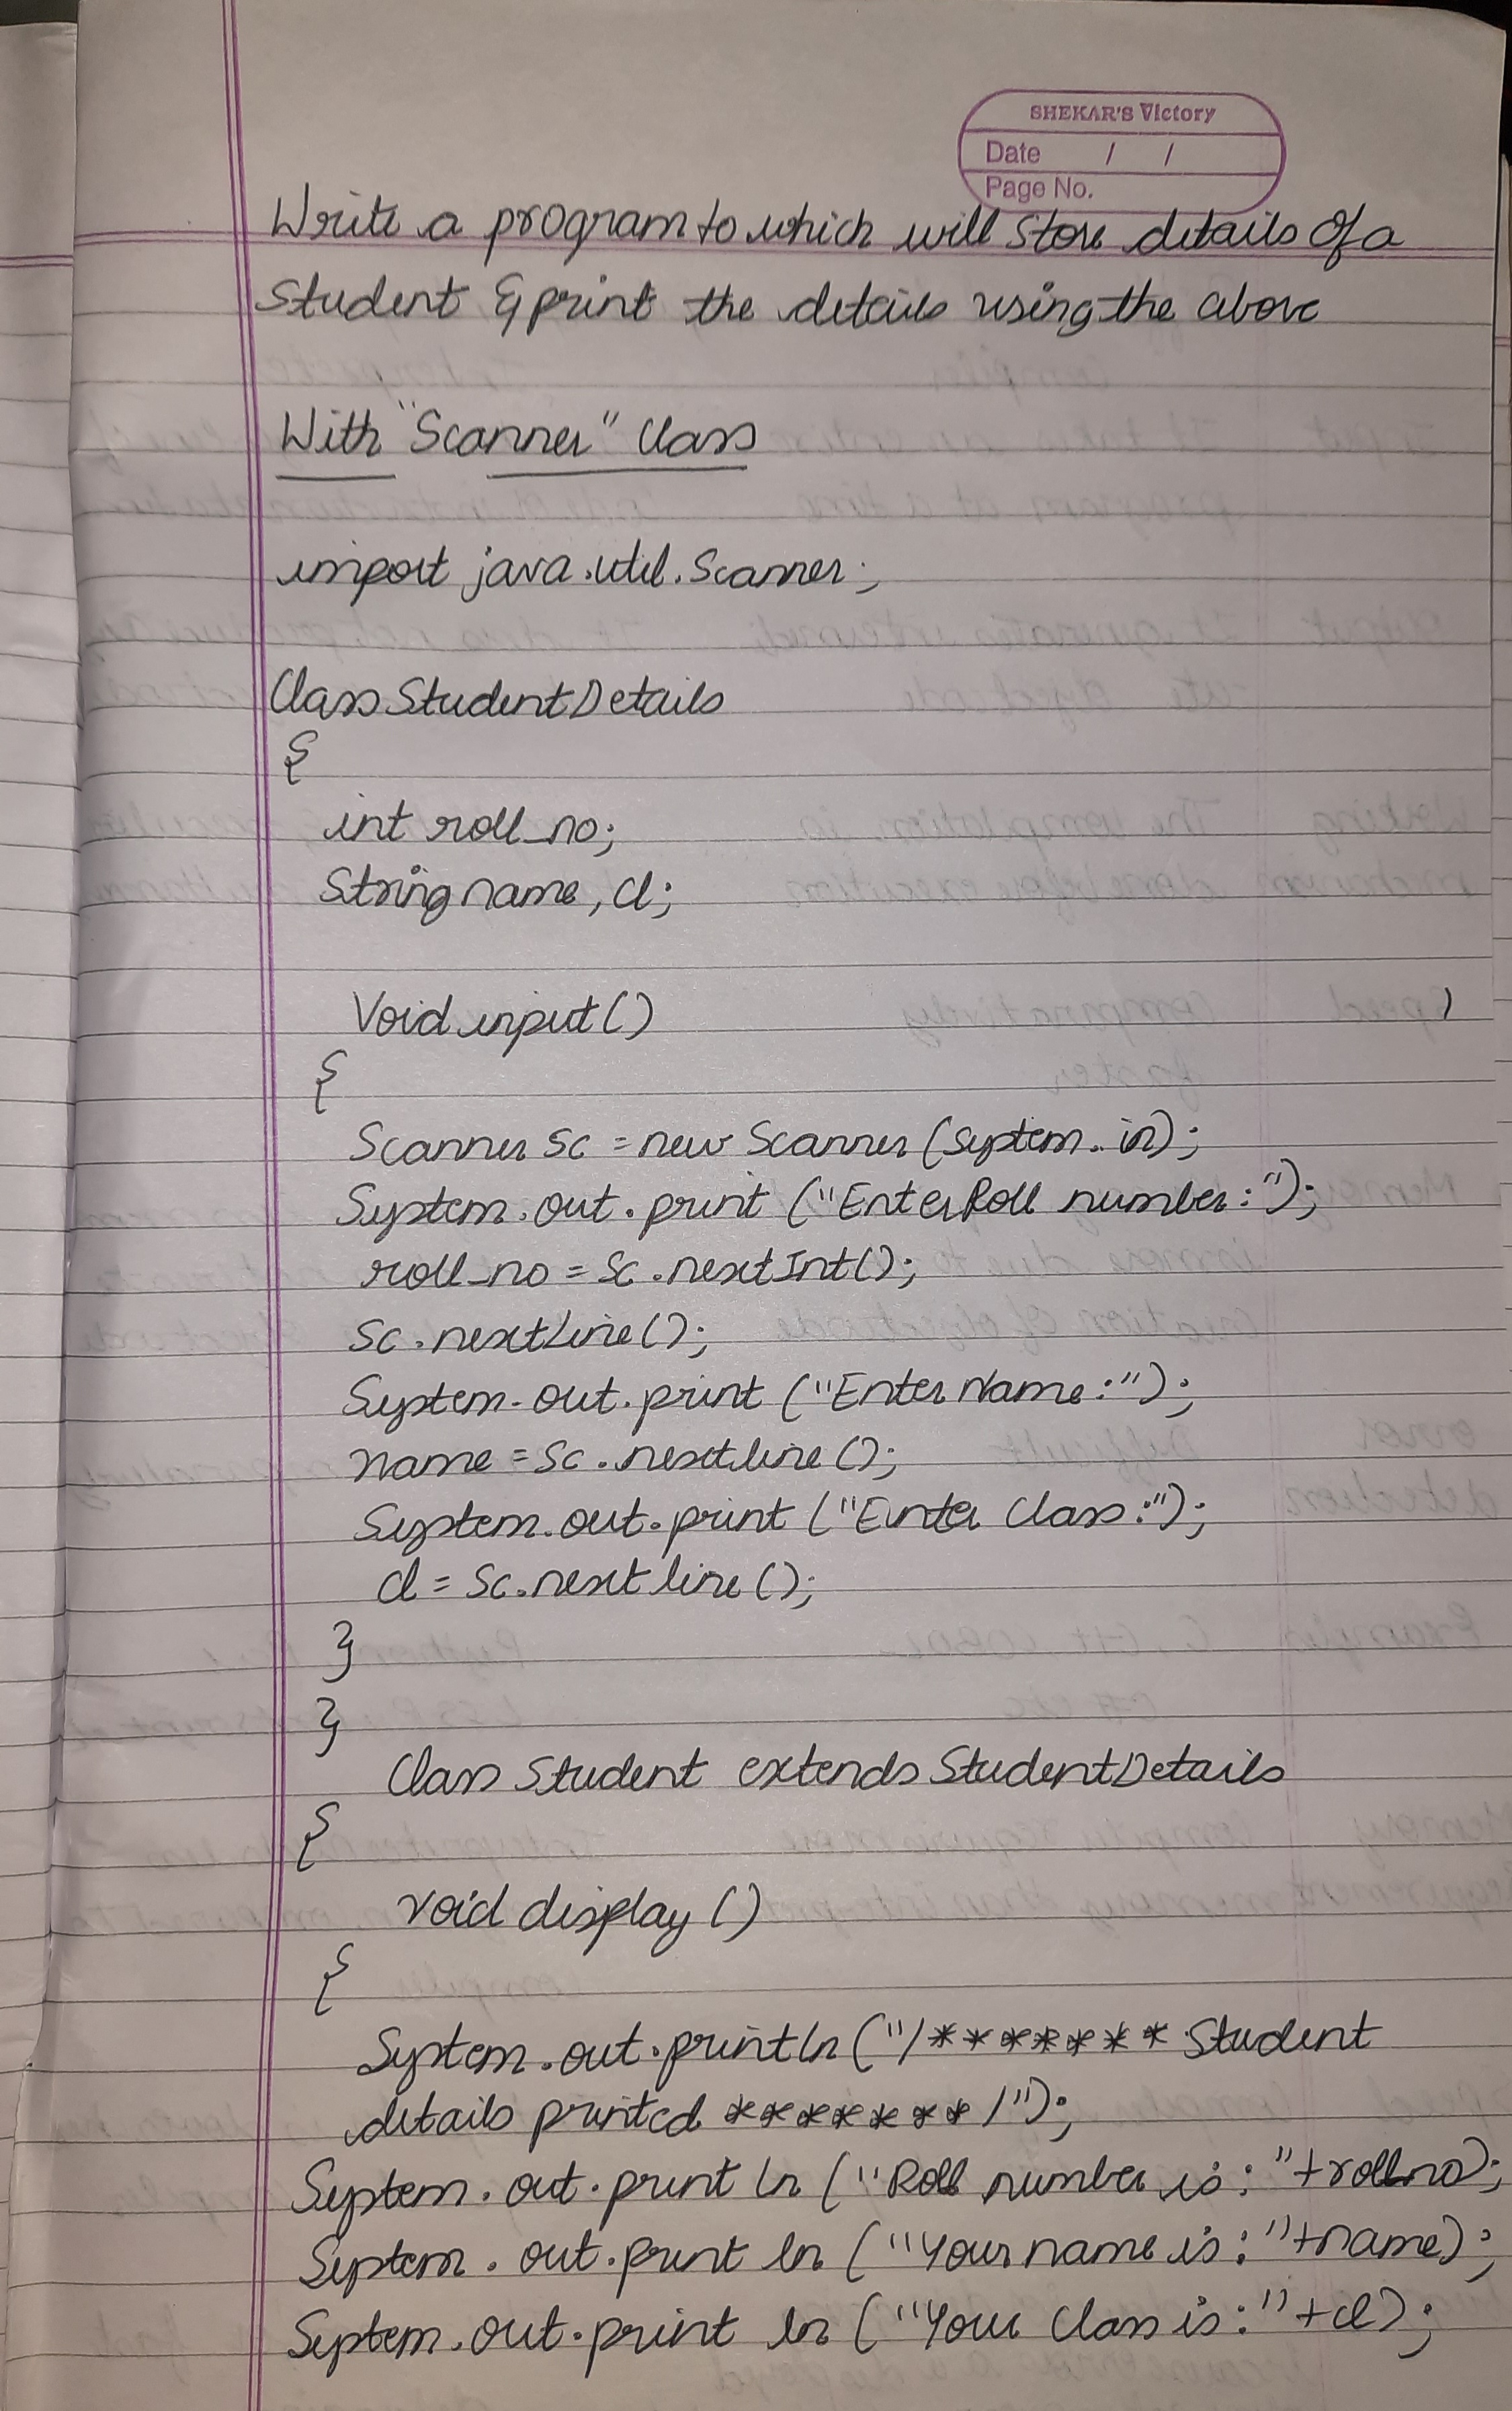 SHEKAR'S Victory
Date / /
Page No.
Write a program to which will store details of a
Student & print the details using the above
With "Scanner" Class
import java.util.Scanner;
Class StudentDetails
{
int roll_no;
String name, cl;
Void input()
{
Scanner sc = new Scanner (System.in);
System.out.print ("Enter Roll number:");
roll_no = sc.nextInt();
sc.nextLine();
System.out.print ("Enter Name:");
name = sc.nextline();
System.out.print ("Enter Class:");
cl = sc.nextline();
}
}
Class Student extends StudentDetails
{
void display()
{
System.out.println ("/******* Student
details printed *******/");
System.out.println ("Roll number is: "+roll_no);
System.out.println ("Your name is: "+name);
System.out.println ("Your Class is: "+cl);